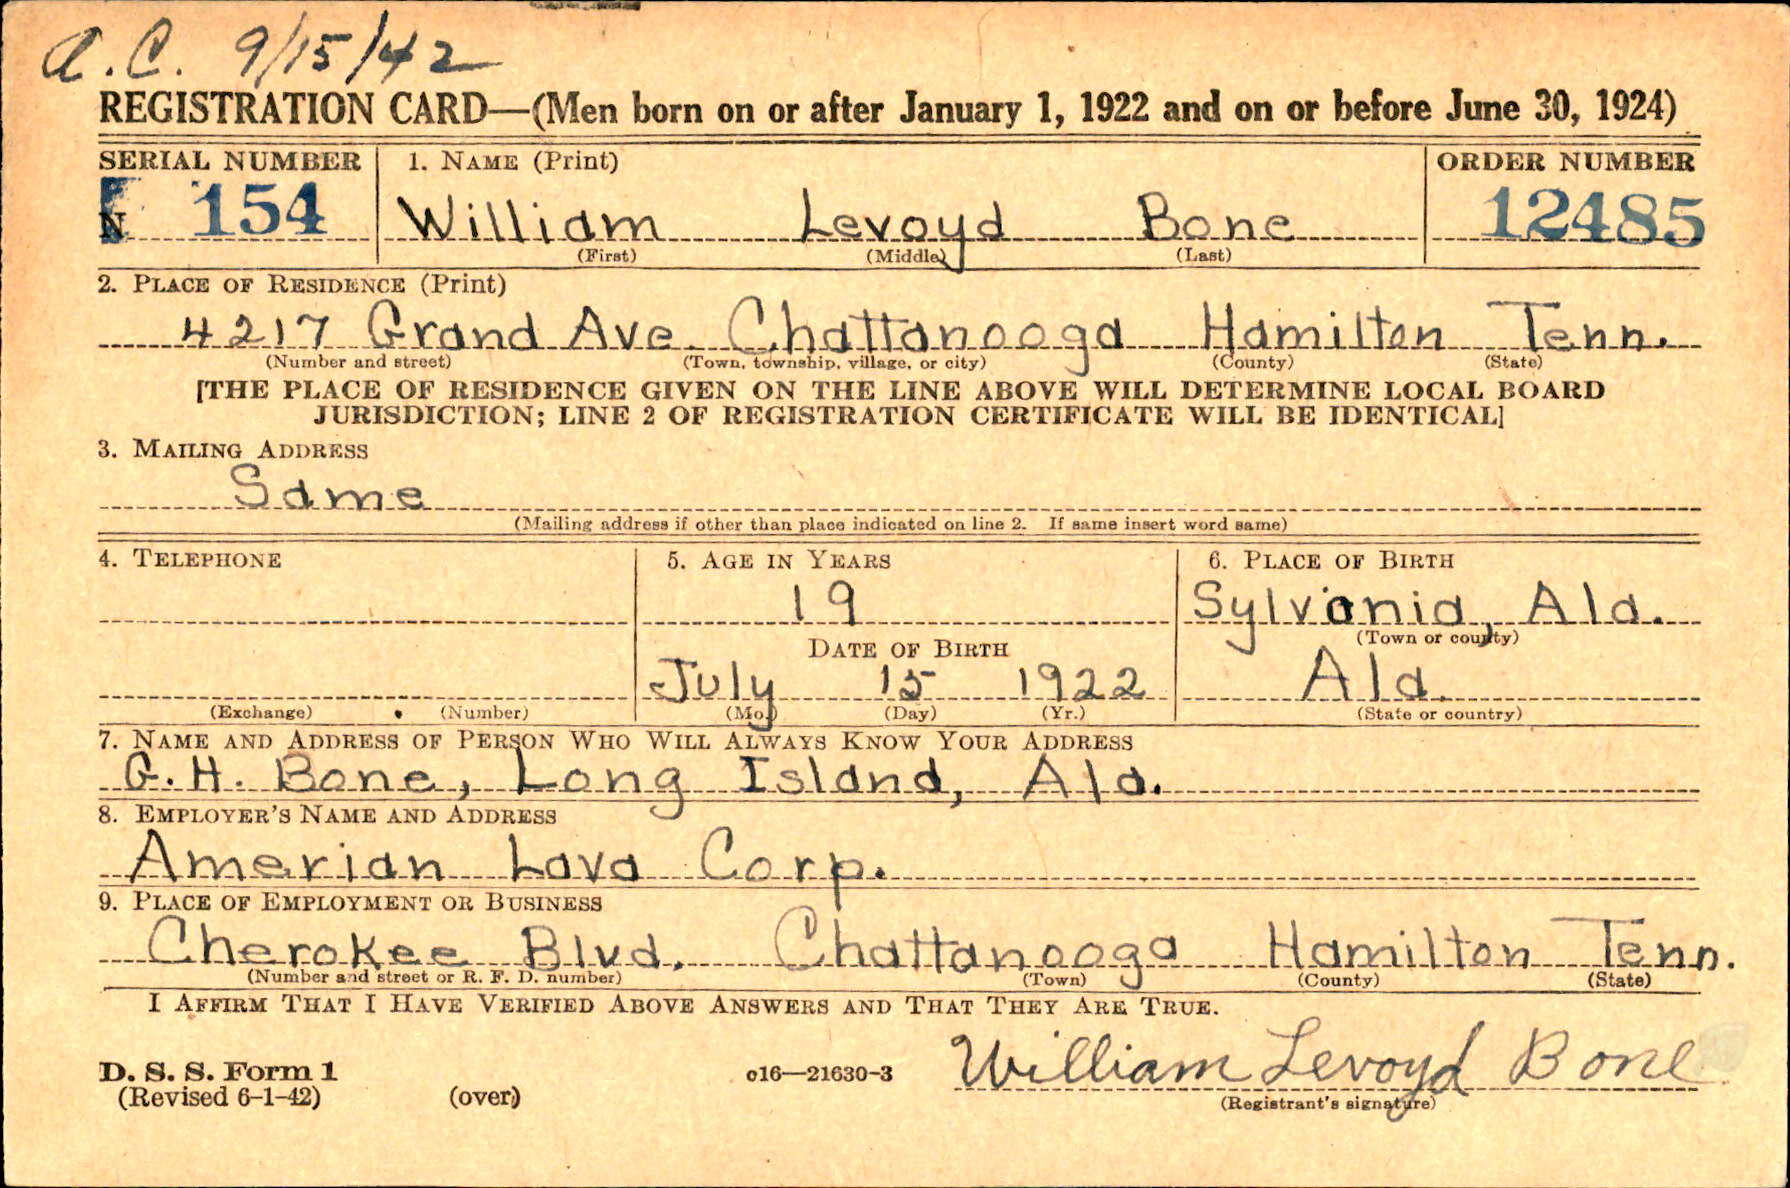 a.C. 9/15/42
REGISTRATION CARD—(Men born on or after January 1, 1922 and on or before June 30, 1924)
SERIAL NUMBER 1. NAME (Print) ORDER NUMBER
N 154 William Levoyd Bone 12485
(First) (Middle) (Last)
2. PLACE OF RESIDENCE (Print)
4217 Grand Ave. Chattanooga Hamilton Tenn.
(Number and street) (Town, township, village, or city) (County) (State)
[THE PLACE OF RESIDENCE GIVEN ON THE LINE ABOVE WILL DETERMINE LOCAL BOARD
JURISDICTION; LINE 2 OF REGISTRATION CERTIFICATE WILL BE IDENTICAL]
3. MAILING ADDRESS
Same
(Mailing address if other than place indicated on line 2. If same insert word same)
4. TELEPHONE 5. AGE IN YEARS 6. PLACE OF BIRTH
19 Sylvania, Ala.
(Town or county)
DATE OF BIRTH
July 15 1922 Ala.
(Exchange) (Number) (Mo.) (Day) (Yr.) (State or country)
7. NAME AND ADDRESS OF PERSON WHO WILL ALWAYS KNOW YOUR ADDRESS
G. H. Bone, Long Island, Ala.
8. EMPLOYER'S NAME AND ADDRESS
Amerian Lava Corp.
9. PLACE OF EMPLOYMENT OR BUSINESS
Cherokee Blvd. Chattanooga Hamilton Tenn.
(Number and street or R. F. D. number) (Town) (County) (State)
I AFFIRM THAT I HAVE VERIFIED ABOVE ANSWERS AND THAT THEY ARE TRUE.
William Levoyd Bone
D. S. S. Form 1 c16—21630-3
(Revised 6-1-42) (over) (Registrant's signature)